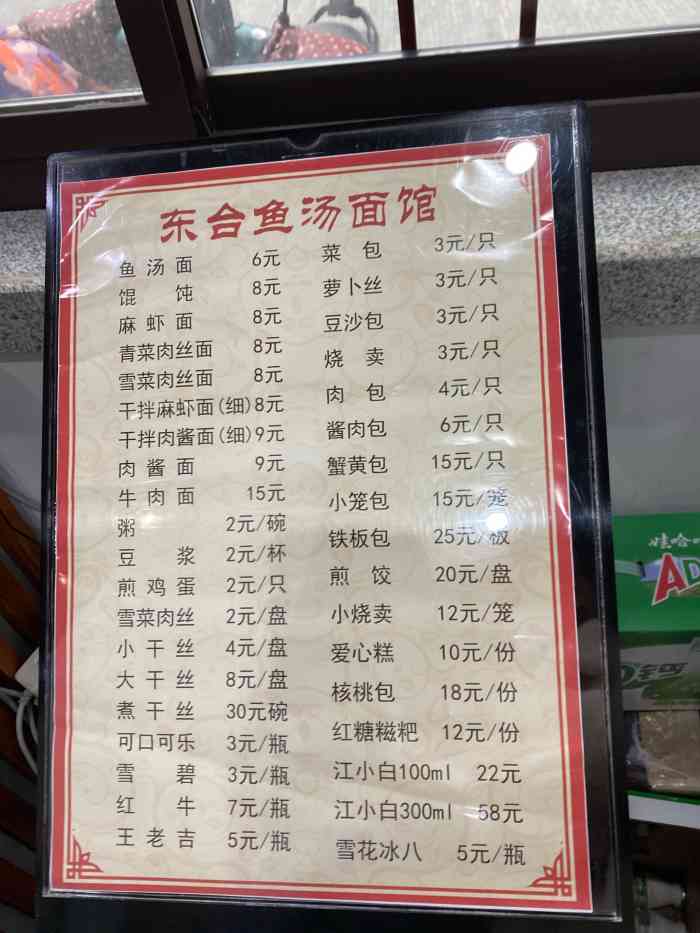 东台鱼汤面馆
鱼汤面 6元
馄饨 8元
麻虾面 8元
青菜肉丝面 8元
雪菜肉丝面 8元
干拌麻虾面(细)8元
干拌肉酱面(细)9元
肉酱面 9元
牛肉面 15元
粥 2元/碗
豆浆 2元/杯
煎鸡蛋 2元/只
雪菜肉丝 2元/盘
小干丝 4元/盘
大干丝 8元/盘
煮干丝 30元碗
可口可乐 3元/瓶
雪碧 3元/瓶
红牛 7元/瓶
王老吉 5元/瓶
菜包 3元/只
萝卜丝 3元/只
豆沙包 3元/只
烧卖 3元/只
肉包 4元/只
酱肉包 6元/只
蟹黄包 15元/只
小笼包 15元/笼
铁板包 25元/板
煎饺 20元/盘
小烧卖 12元/笼
爱心糕 10元/份
核桃包 18元/份
红糖糍粑 12元/份
江小白100ml 22元
江小白300ml 58元
雪花冰八 5元/瓶
娃哈
AD
钙